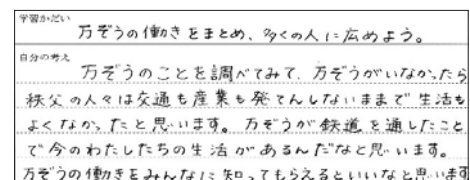 学習かだい
万ぞうの働きをまとめ、多くの人に広めよう。
自分の考え
万ぞうのことを調べてみて、万ぞうがいなかったら
秩父の人々は交通も産業も発てんしないままで生活も
よくなかったと思います。万ぞうが鉄道を通したこと
で今のわたしたちの生活があるんだなと思います。
万ぞうの働きをみんなに知ってもらえるといいなと思います